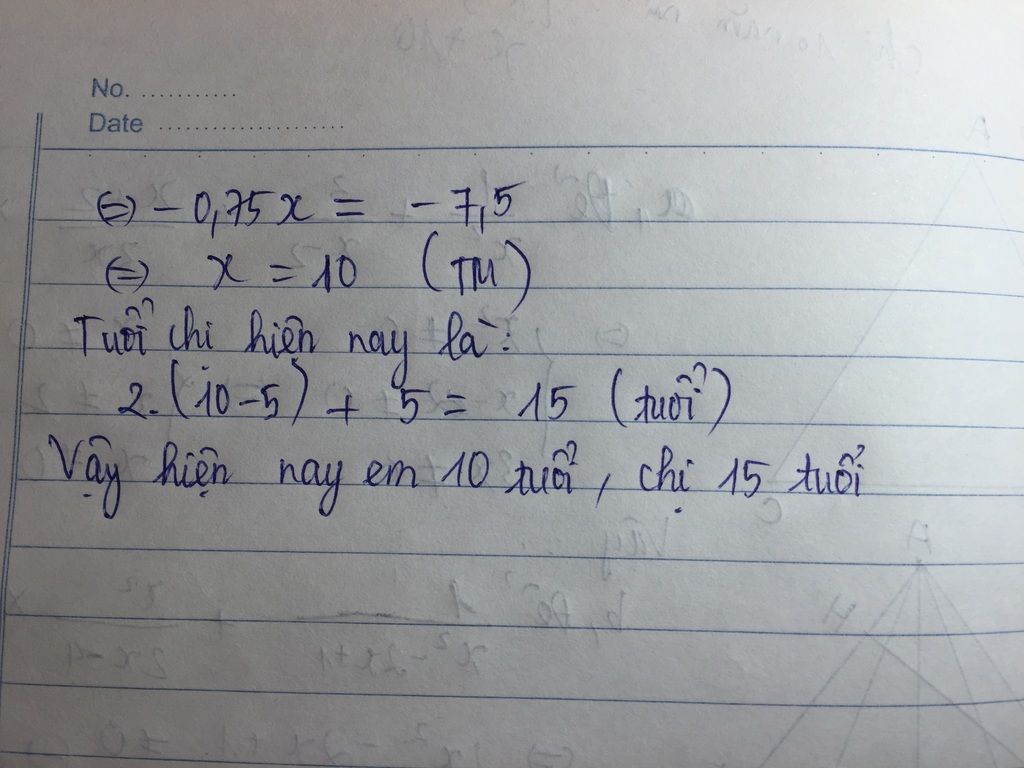 No. ...........
Date ......................
⇔ - 0,75x = - 7,5
⇔ x = 10 (TM)
Tuổi chị hiện nay là:
2.(10-5) + 5 = 15 (tuổi)
Vậy hiện nay em 10 tuổi, chị 15 tuổi